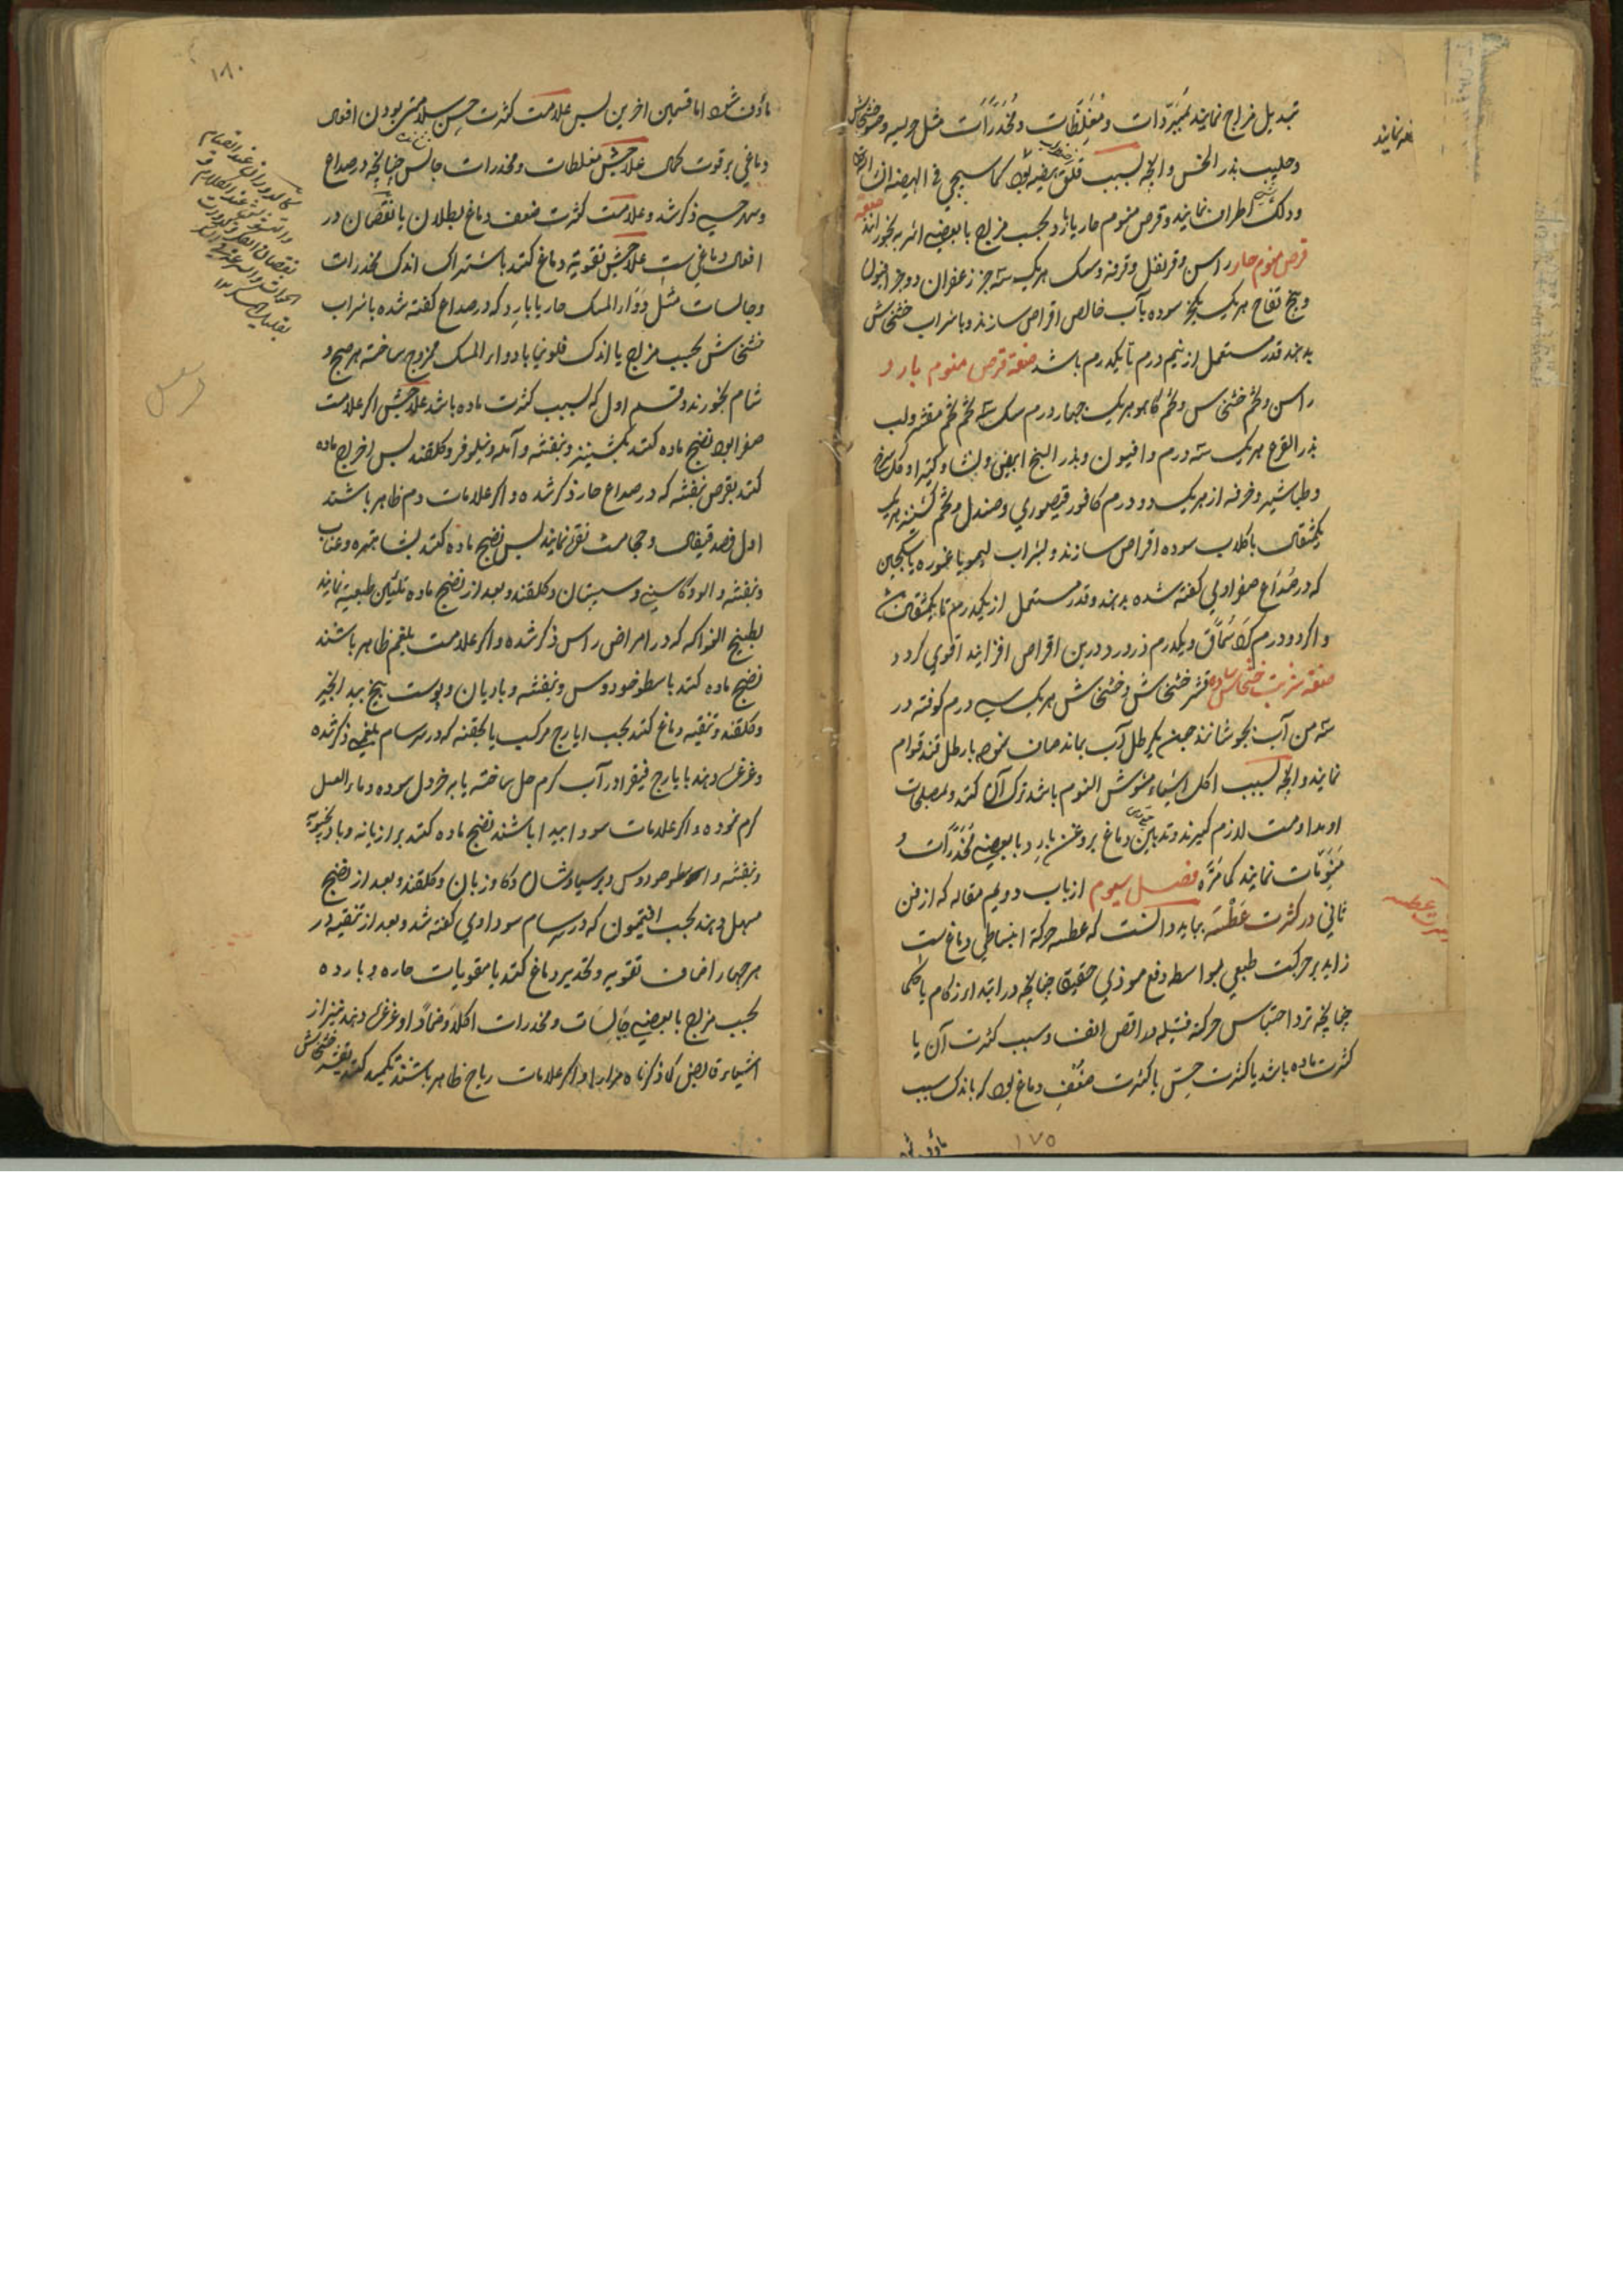 تبدیل مزاج نمایند بمبردات و مغلظات و مخدرات مثل هریسه و خشخاش
و حلیب بذر الخس و آنچه بسبب قلق هیضه بود کما سیجی فی الهیضه ان
و دلک اطراف نمایند و قرص منوم حار یا بارد بحسب مزاج با بعضی اشربه بخورانند صفة
قرص منوم حار راسن و قرنفل و قرفه و سک هریک سه جز زعفران دو جز افیون
و بیخ تفاح هریک یکجز سوده بآب خالص اقراص سازند و باشراب خشخاش
بدهند قدر مستعمل از نیم درم تا یکدرم باشد صفة قرص منوم بارد
راسن و تخم خشخاس و تخم کاهو هریک چهار درم سک سه تخم مقشر ولب
بذر القرع هریک سه درم و افیون و بذر البنج ابیض و نشا و کتیرا و گل سرخ
و طباشیر و خرفه از هریک دو درم کافور قیصوری و صندل و تخم کشنیز هریک
یکمثقال باگلاب سوده اقراص سازند و بشراب لیمو یا غوره یا سکنجبین
که در صداع صفراوی گفته شده بدهند و قدر مستعمل از یکدرم تا یکمثقال
و اگر دو درم سماق و یکدرم ذرورد درین اقراص افزایند اقوی گردد
صفة شربت خشخاش ساده قشر خشخاش و خشخاش هریک سی درم کوفته در
سه من آب بجوشانند چون یکرطل آب بماند صاف نموده بارطل قند قوام
نمایند و آنچه بسبب اکل اشیاء مشوش النوم باشد ترک آن کنند و بمصلحات
او مداومت لازم گیرند و تدهین دماغ بروغن بارد با بعضی مخدرات و
منومات نمایند کما مره فصل سیوم از باب دویم مقاله که از فن
ثانی در کثرت عطسه بباید دانست که عطسه حرکة انبساطی دماغ ست
زاید بر حرکت طبعی بواسطه دفع موذی حقیقة چنانچه در ابتداء زکام یا حکما
چنانچه نزد احتباس حرکة فتیله در اقصی انف و سبب کثرت آن یا
کثرت ماده باشد یا کثرت حس یا کثرت ضعف دماغ بود که باندک سبب
۱۷۵
۱۸۰
ماؤف شود اما قسمین اخرین پس علامت کثرت حس سلامتی بودن افعال
دماغی بر قوت کمال علاجش مغلظات و مخدرات چنانچه در صداع
و سهر حسی ذکر شد و علامت کثرت ضعف دماغ بطلان یا نقصان در
افعال دماغی ست علاجش تقویة دماغ کنند باشتراک اندک مخدرات
و جالسات مثل دواء المسک حار یا بارد که در صداع گفته شده باشراب
خشخاش بحسب مزاج یا اندک فلونیا بادواء المسک ممزوج ساخته هر صبح و
شام بخورند و قسم اول که بسبب کثرت ماده باشد علاجش اگر علامت
صفرا بود نضج ماده کنند بکشنیز و بنفشه و آمله و نیلوفر و گلقند پس اخراج ماده
کنند بقرص بنفشه که در صداع حار ذکر شده و اگر علامات دم ظاهر باشند
اول فصد قیفال و حجامت نقره نمایند پس نضج ماده کنند بشاهتره و عناب
و بنفشه و الو و کاسنی و سپستان و گلقند و بعد از نضج ماده تلئین طبیعة نمایند
بطبیخ الفواکه که در امراض راس ذکر شده و اگر علامت بلغم ظاهر باشند
نضج ماده کنند باسطوخودوس و بنفشه و بادیان و پوست بیخ بید انجیر
و گلقند و تنقیه دماغ کنند بحب ایارج مرکب یا بحقنه که در سرسام بلغمی ذکر شده
و غرغره دهند بایارج فیقرا در آب گرم حل ساخته یا به خردل سوده و ماء العسل
گرم نموده و اگر علامات سودا پیدا باشند نضج ماده کنند برازیانه و بادرنجبویه
و بنفشه و اسطوخودوس و پرسیاوشان و گاوزبان و گلقند و بعد از نضج
مسهل دهند بحب افتیمون که در سرسام سوداوی گفته شد و بعد از تنقیه در
هر چهار اضاف تقویه و تخدیر دماغ کنند با مقویات حاره و بارده
بحسب مزاج با بعضی جالسات و مخدرات اکلا و ضمادا و غرغره دهند نیز از
اشیاء قابض کما ذکرناه مرارا و اگر علامات ریاح ظاهر باشند تکمید کنند بقشر خشخاش